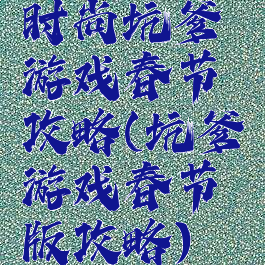 时尚坑爹
游戏春节
攻略(坑爹
游戏春节
版攻略)